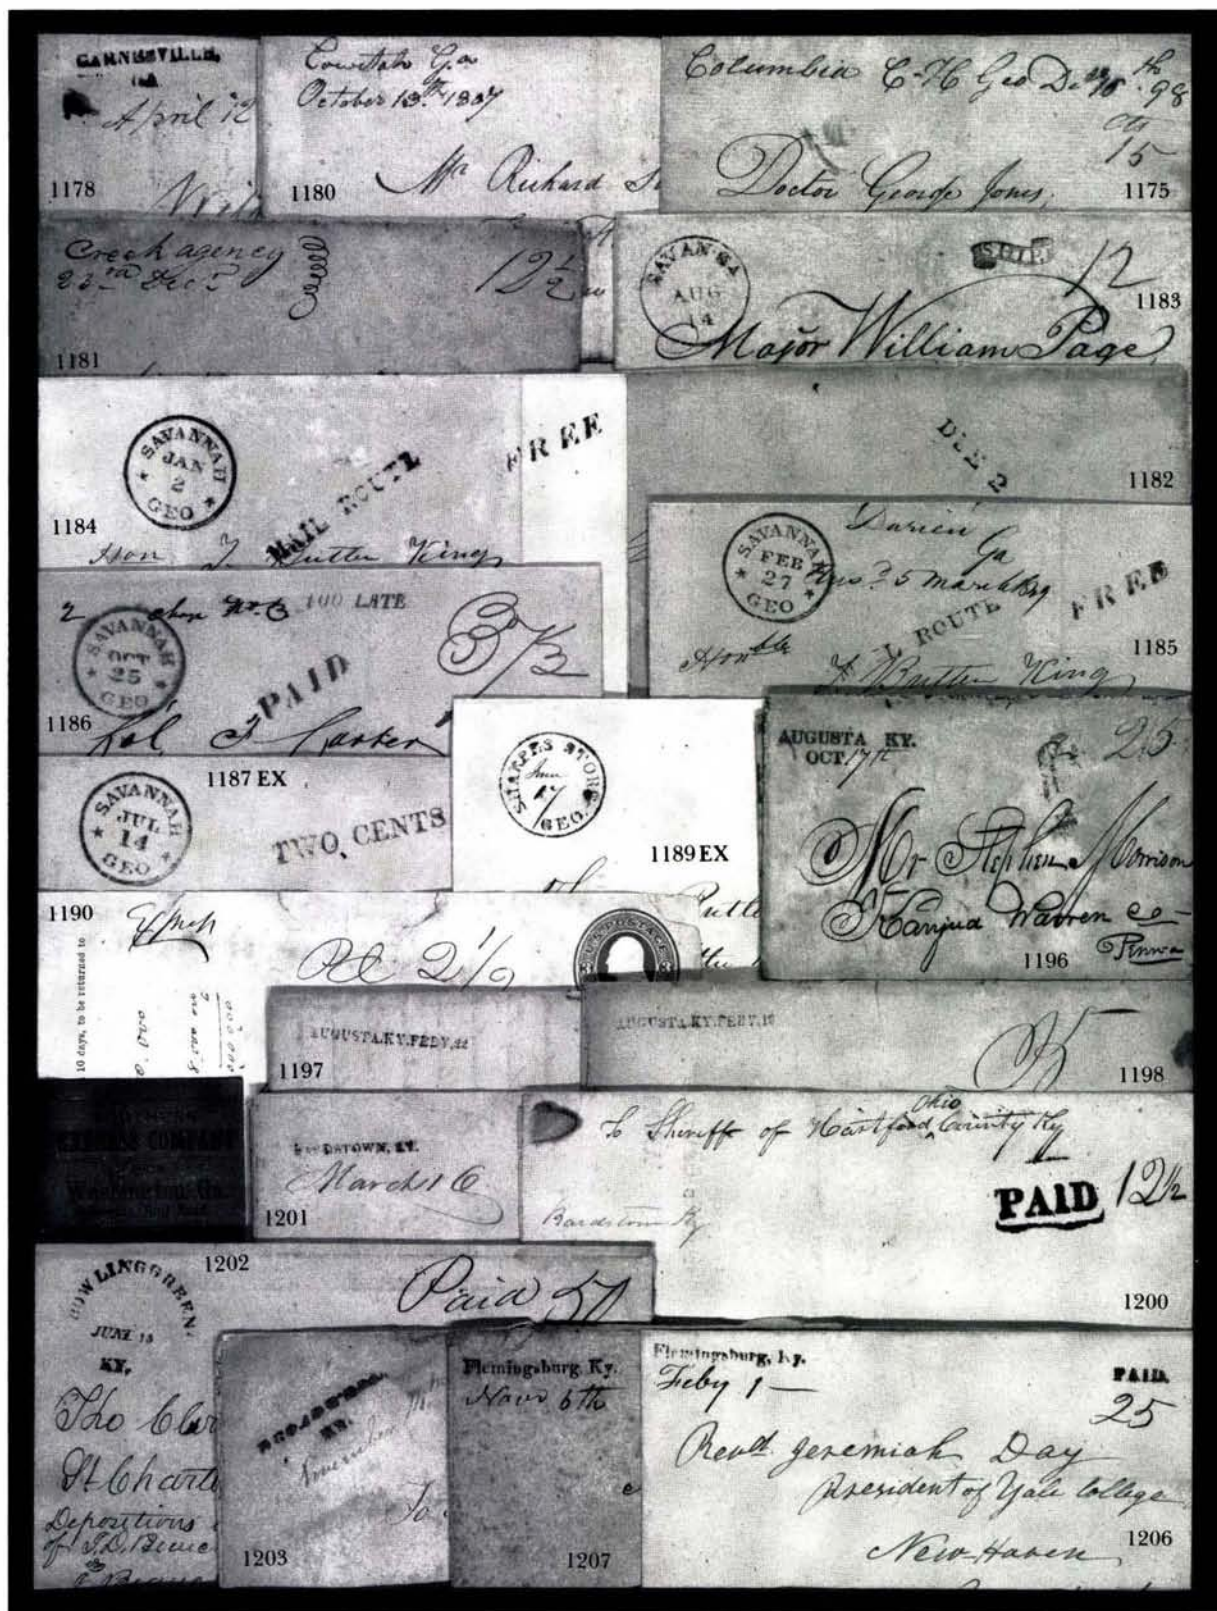 CARNESVILLE,
GA
April 12
1178
Cowetah Ga
October 13th 1837
Mr Richard
1180
Columbia C-H Geo Decr 16th 98
cts
15
Doctor George Jones,
1175
Creek agency
22nd Decr
12½
1181
SAVAN-GA
AUG
14
SHIP
12
1183
Major William Page
SAVANNAH
JAN
2
GEO
MAIL ROUTE
FREE
1184
Hon T. Butler King
DUE 2
1182
SAVANNAH
FEB
27
GEO
Darien
Ga
5 March
ROUTE
FREE
1185
Honble T. Butler King
2
TOO LATE
SAVANNAH
OCT
25
GEO
PAID
1186
Col
SHARPES STORE
GEO.
1189 EX
AUGUSTA KY.
OCT. 17th
25
Mr Stephen Morrison
Kanjud Warren Co
Penna
1196
1187 EX
SAVANNAH
JUL
14
GEO
TWO CENTS
1190
10 days, to be returned to
U.S. POSTAGE
AUGUSTA.KY.FEBY.22
1197
AUGUSTA.KY.FEBY.18
25
1198
EXPRESS COMPANY
Washington, Ga.
BARDSTOWN, KY.
March 16
1201
To Sheriff of Hartford Ohio County Ky
PAID 12½
Bardstown Ky
1200
1202
BOWLINGGREEN
JUNE 15
KY.
Paid 50
Tho
St Charl
Depositions
of J.D.
November
To
1203
Flemingsburg, Ky.
Novr 6th
1207
Flemingsburg, Ky.
Feby 1 —
PAID.
25
Revd. Jeremiah Day
President of Yale College
New Haven
1206